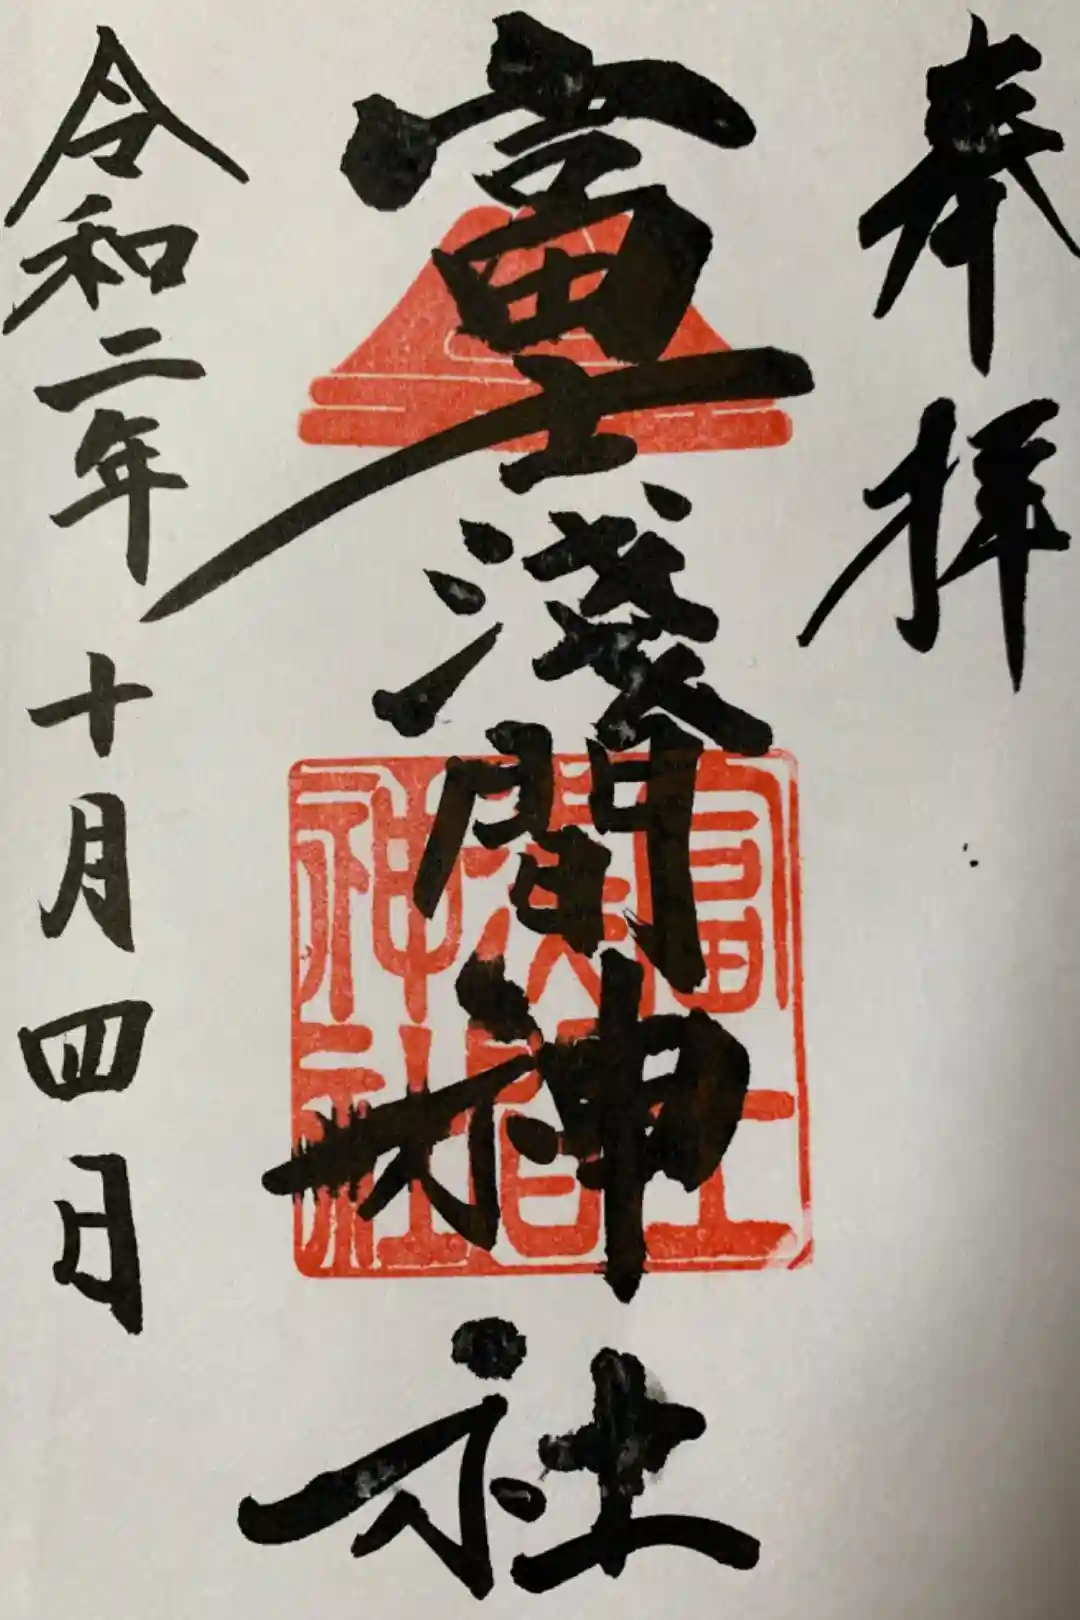 奉拝
富士淺間神社
富士
浅間
神社
令和二年十月四日